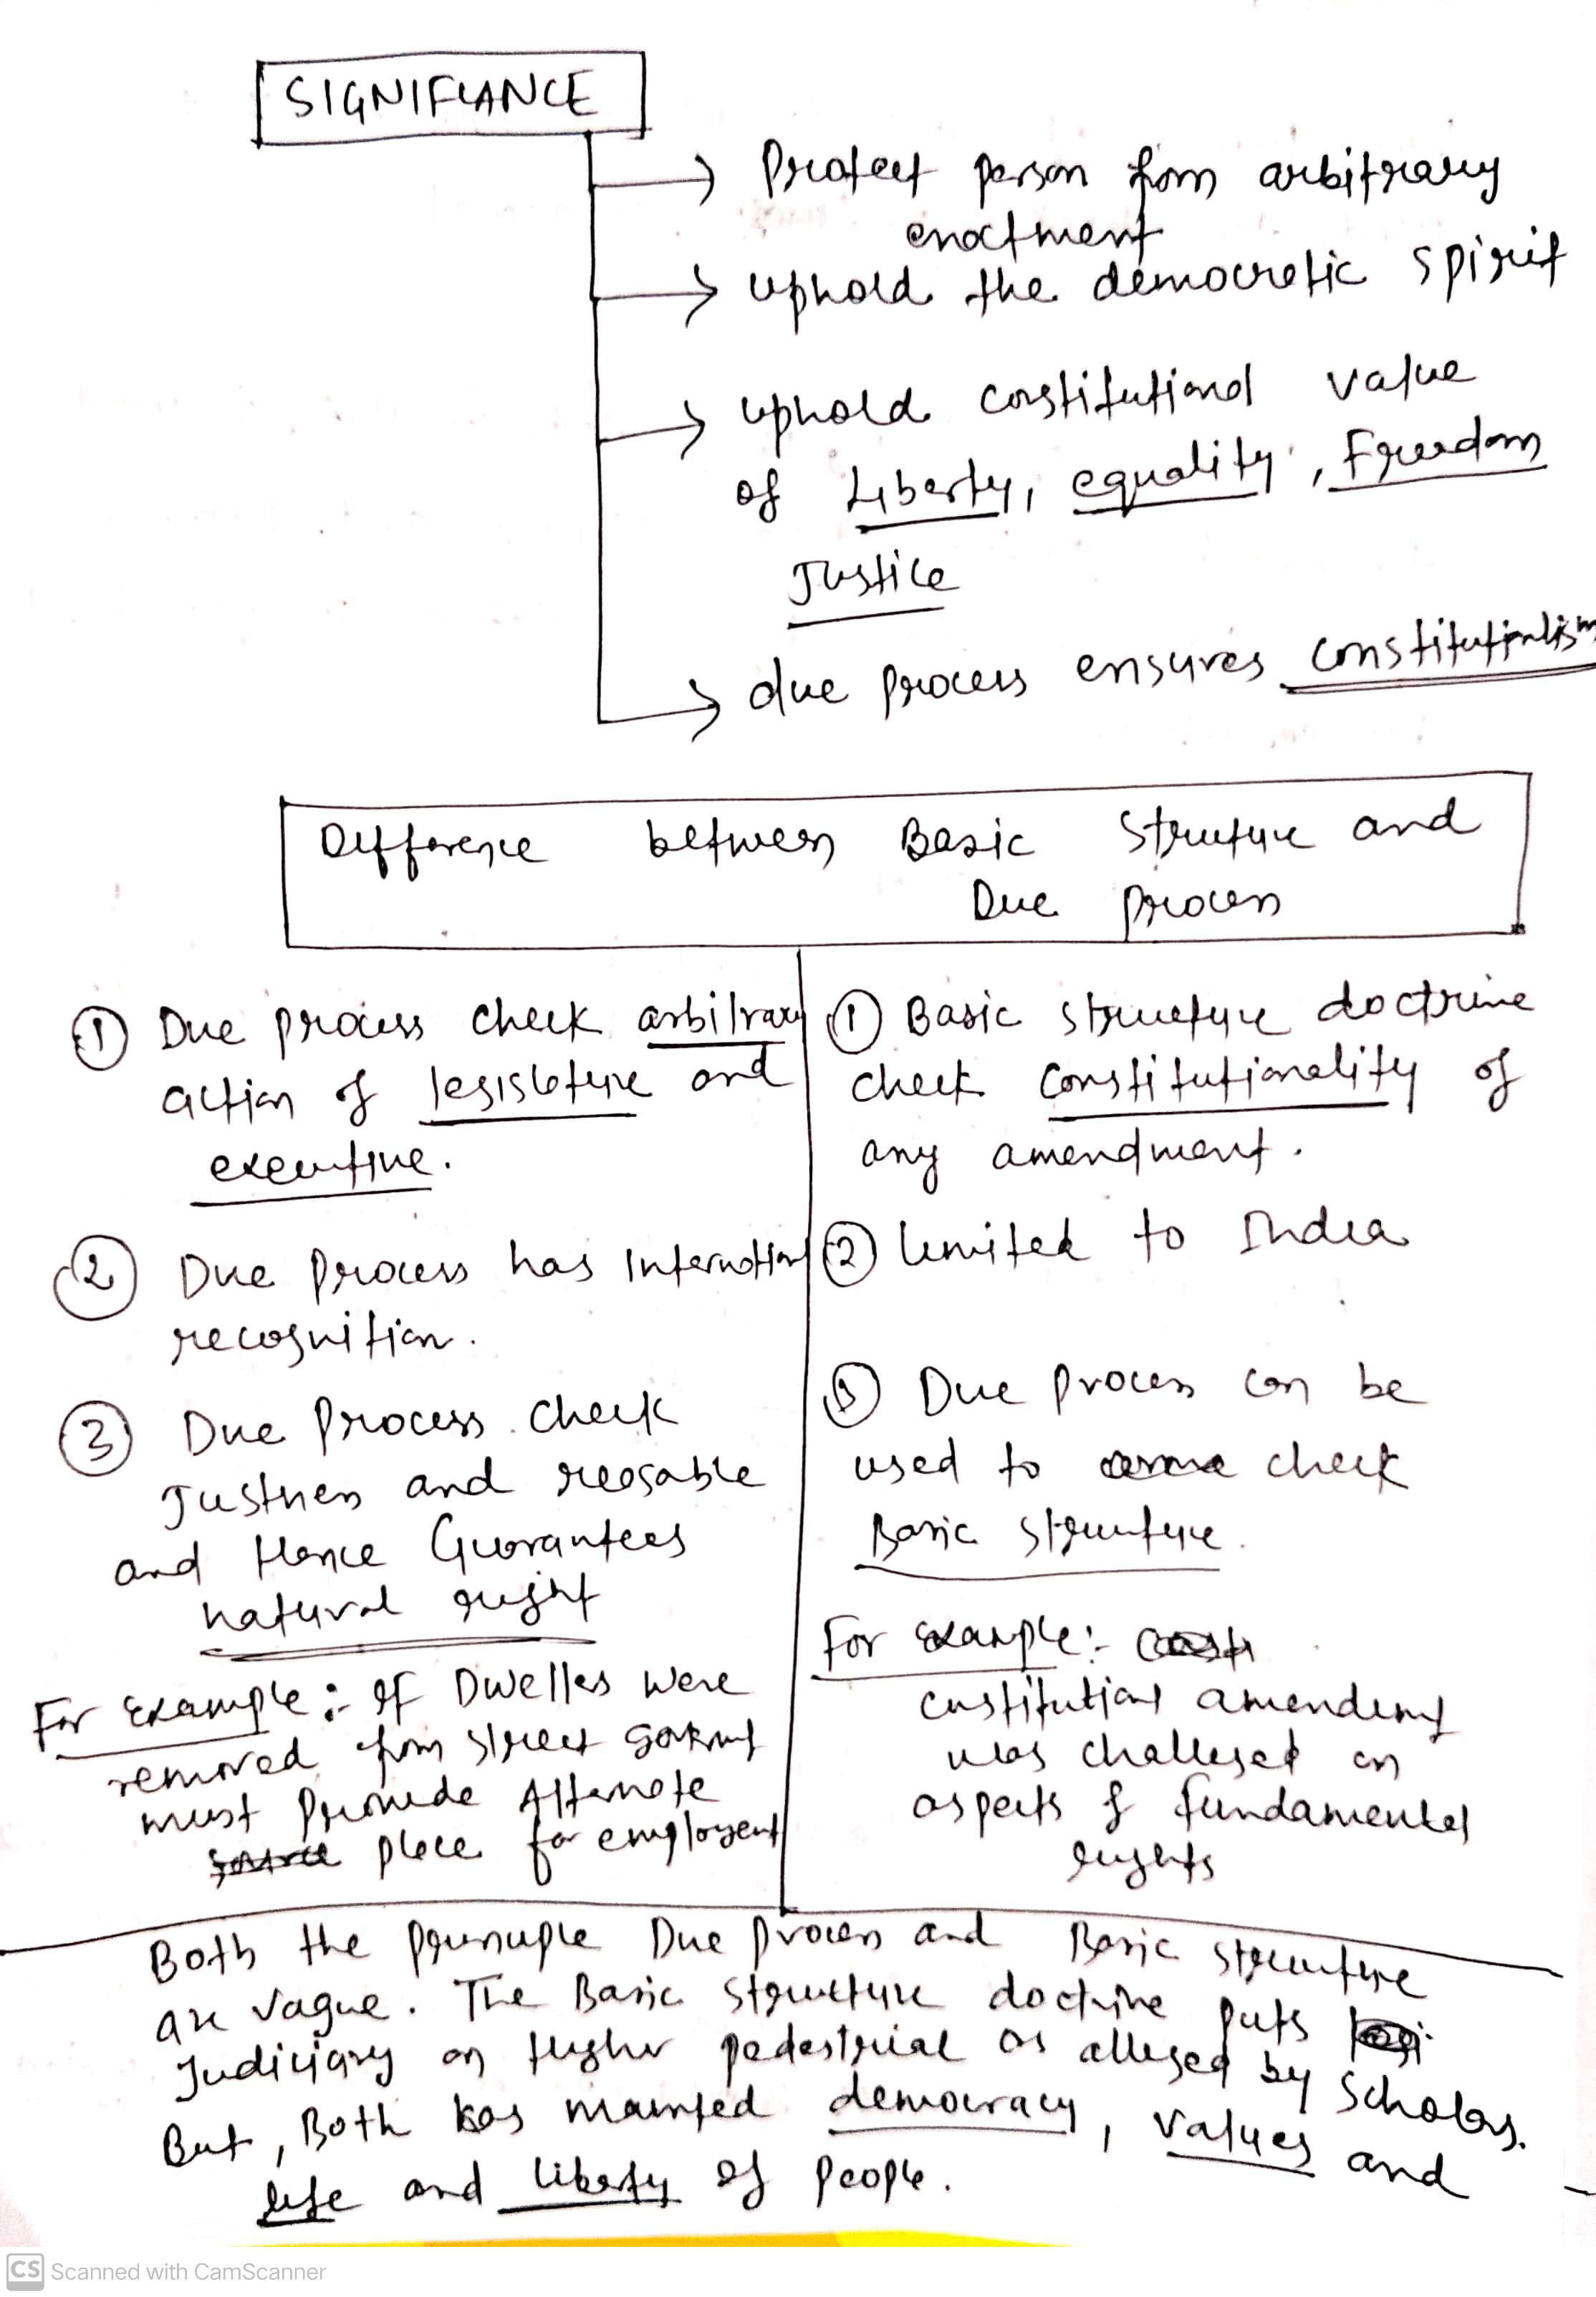 SIGNIFIANCE
→ Protect person from arbitrary
enactment
→ uphold the democratic spirit
→ uphold constitutional value
of Liberty, equality, Freedom
Justice
→ due process ensures constitutionalism
Difference between Basic Structure and
Due Process
① Due process check arbitrary
action of legislature and
executive.
② Due Process has International
recognition.
③ Due Process check
Justness and reasable
and Hence Guarantees
natural right
For Example :- If Dwellers were
removed from street
must Provide Alternate
place for employent
① Basic structure doctrine
check constitutionality of
any amendment.
② limited to India
③ Due Process can be
used to check
Basic Structure.
For Example :-
constitutional amendent
was challeged on
aspects of fundamental
rights
Both the principle Due Process and Basic structure
are vague. The Basic structure doctrine puts
Judiciary on higher pedestrial as alleged by Scholars.
But, Both has democracy, values and
life and liberty of People.
CS Scanned with CamScanner